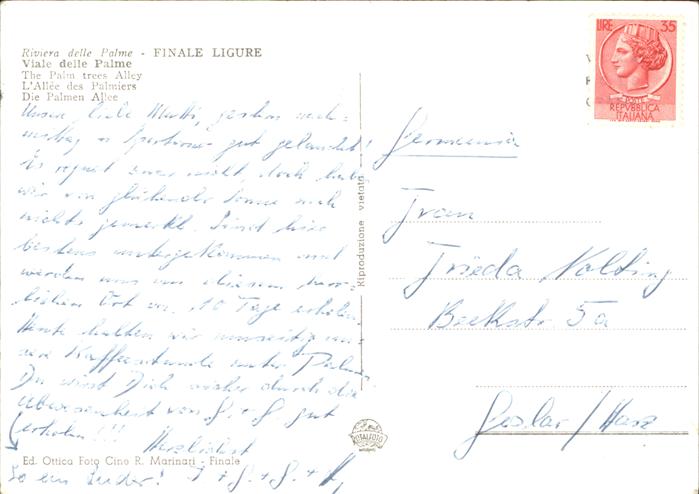 Riviera delle Palme - FINALE LIGURE
Viale delle Palme
The Palm trees Alley
L'Allée des Palmiers
Die Palmen Allee
Unsere liebe Mutti, gestern nach-
mittag in gut gelandet!
Es regnet zwar nicht, doch haben
wir von glühender Sonne noch
nichts gemerkt. Sind hier
bestens untergekommen und
werden uns an diesem herr-
lichen Ort ca. 10 Tage erholen.
Heute halten wir unsere
Kaffeestunde unter Palmen
Du wirst Dich sicher durch die
von S. + S. gut
erholen!!!
Herzlichst
So ein Luder!
Ed. Ottica Foto Cine R. Marinari - Finale
Riproduzione vietata
ITALFOTO
LIRE 35
POSTE
REPVBBLICA
ITALIANA
Germania
Frau
Frieda Nolting
Beekstr. 5a
Goslar / Harz